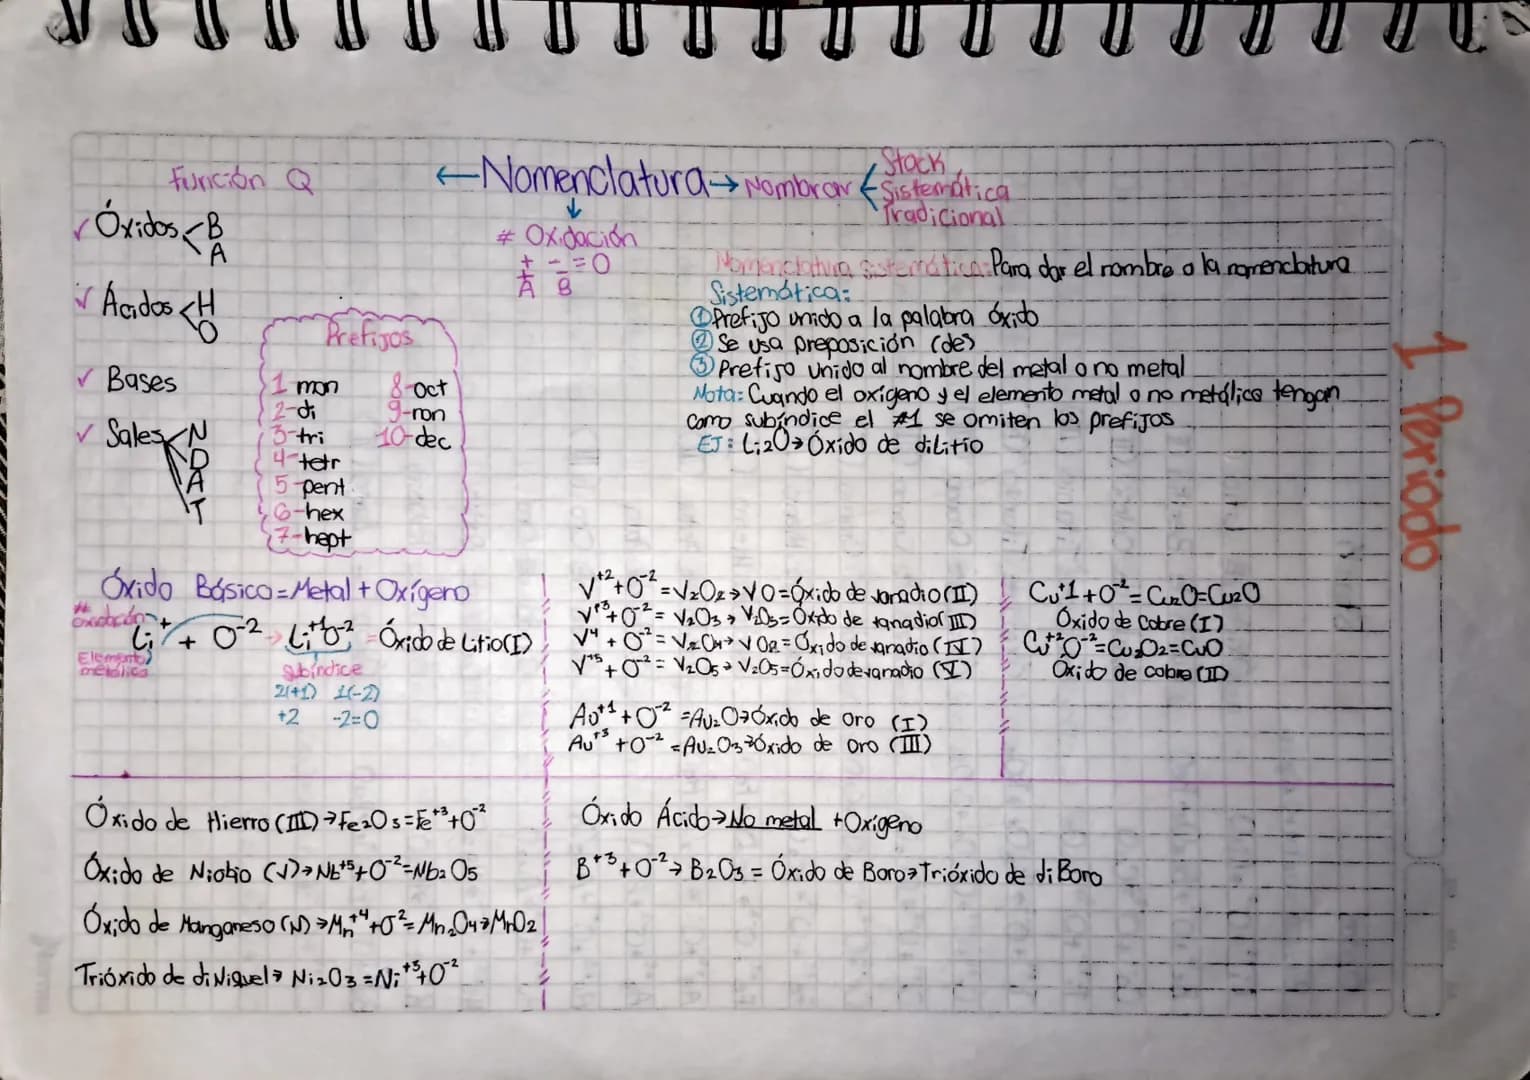 Función Q
←Nomenclatura→ Nombrar
Stock
Sistemática
Tradicional
✓ Óxidos B
A
# Oxidación
+ - =0
A B
✓ Ácidos H
O
✓ Bases
✓ Sales N
D
A
T
Prefijos
1 mon 8-oct
2-di 9-non
3-tri 10-dec
4-tetr
5-pent
6-hex
7-hept
Nomenclatura sistemática: Para dar el nombre a la nomenclatura
Sistemática:
① Prefijo unido a la palabra óxido
② Se usa preposición (de)
③ Prefijo unido al nombre del metal o no metal
Nota: Cuando el oxígeno y el elemento metal o no metálico tengan
como subíndice el #1 se omiten los prefijos
EJ: Li2O→Óxido de diLitio
1 Periodo
Óxido Básico=Metal+Oxígeno
# oxidación
Li+ + O-2 → Li+1O-2 =Óxido de Litio(I)
Elemento metálico
subíndice
2(+1) 1(-2)
+2 -2=0
V+2+O-2=V2O2→VO=Óxido de vanadio(II)
V+3+O-2=V2O3→V2O3=Óxido de vanadio(III)
V4+O-2=V2O4→VO2=Óxido de vanadio(IV)
V+5+O-2=V2O5→V2O5=Óxido de vanadio (V)
Au+1+O-2=Au2O→Óxido de oro (I)
Au+3+O-2=Au2O3→Óxido de oro (III)
Cu+1+O-2=Cu2O=Cu2O
Óxido de Cobre (I)
Cu+2O-2=Cu2O2=CuO
Óxido de cobre (II)
Óxido de Hierro (III)→Fe2O3=Fe+3+O-2
Óxido de Niobio (V)→Nb+5+O-2=Nb2O5
Óxido de Manganeso (IV)→Mn+4+O-2=Mn2O4→MnO2
Trióxido de diNiquel→Ni2O3=Ni+3+O-2
Óxido Ácido→No metal +Oxígeno
B+3+O-2→B2O3=Óxido de Boro→Trióxido de diBoro